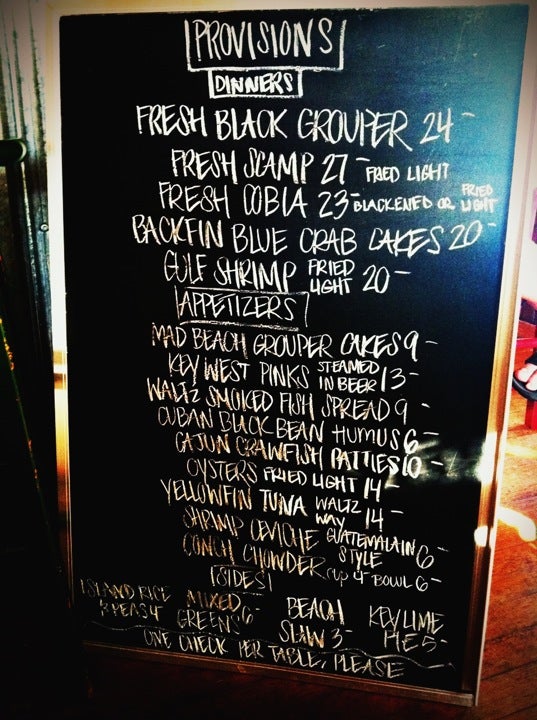 PROVISIONS
DINNERS
FRESH BLACK GROUPER 24-
FRESH SCAMP 27- FRIED LIGHT
FRESH COBIA 23- BLACKENED OR FRIED LIGHT
BACKFIN BLUE CRAB CAKES 20-
GULF SHRIMP FRIED LIGHT 20-
APPETIZERS
MAD BEACH GROUPER CAKES 9-
KEY WEST PINKS STEAMED IN BEER 13-
WALTZ SMOKED FISH SPREAD 9-
CUBAN BLACK BEAN HUMUS 6-
CAJUN CRAWFISH PATTIES 10-
OYSTERS FRIED LIGHT 14-
YELLOWFIN TUNA WALTZ WAY 14-
SHRIMP CEVICHE GUATEMALAIN STYLE 6-
CONCH CHOWDER CUP 4- BOWL 6-
SIDES
ISLAND RICE & PEAS 4- MIXED GREENS 6- BEACH SLAW 3- KEY LIME PIE 5-
ONE CHECK PER TABLE, PLEASE